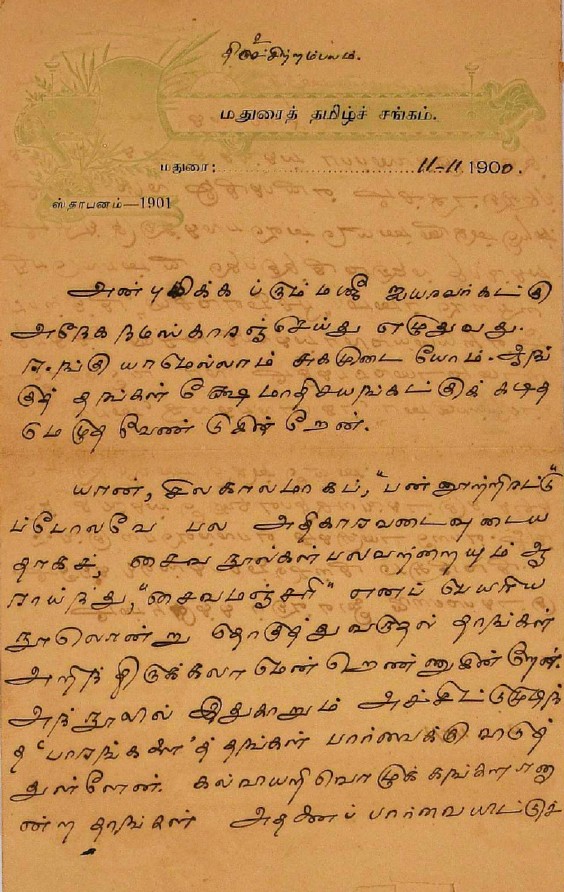 உ
திருச்சிற்றம்பலம்.
மதுரைத் தமிழ்ச் சங்கம்.
மதுரை: 11-11 1900.
ஸ்தாபனம்—1901
அன்புமிக்க ஐயாவர்கட்கு
அநேக நமஸ்காரஞ்செய்து எழுதுவது.
ஈங்கு யாமெல்லாம் சுகமுடையோம். ஆங்
குத் தங்கள் க்ஷேமாதிசயங்கட்குக் கடித
மெழுத வேண்டுகின்றேன்.
யான், சிலகாலமாகப், "பன்னூற்றிரட்டு"
ப்போலவே பல அதிகாரவடைவுடைய
தாகச், சைவநூல்கள் பலவற்றையும் ஆ
ராய்ந்து, "சைவமஞ்சரி" எனப் பெயரிய
நூலொன்று தொகுத்து வருதல் தாங்கள்
அறிந்திருக்கலாமென்றெண்ணுகின்றேன்.
அந்நூலில் இதுகாறும் அச்சிட்டுமுடிந்
த 'பாரங்களை'த் தங்கள் பார்வைக்கு வரு
துள்ளேன். கல்வியறிவொழுக்கங்களா
ன்ற தாங்கள் அதனைப் பார்வையிட்டுச்